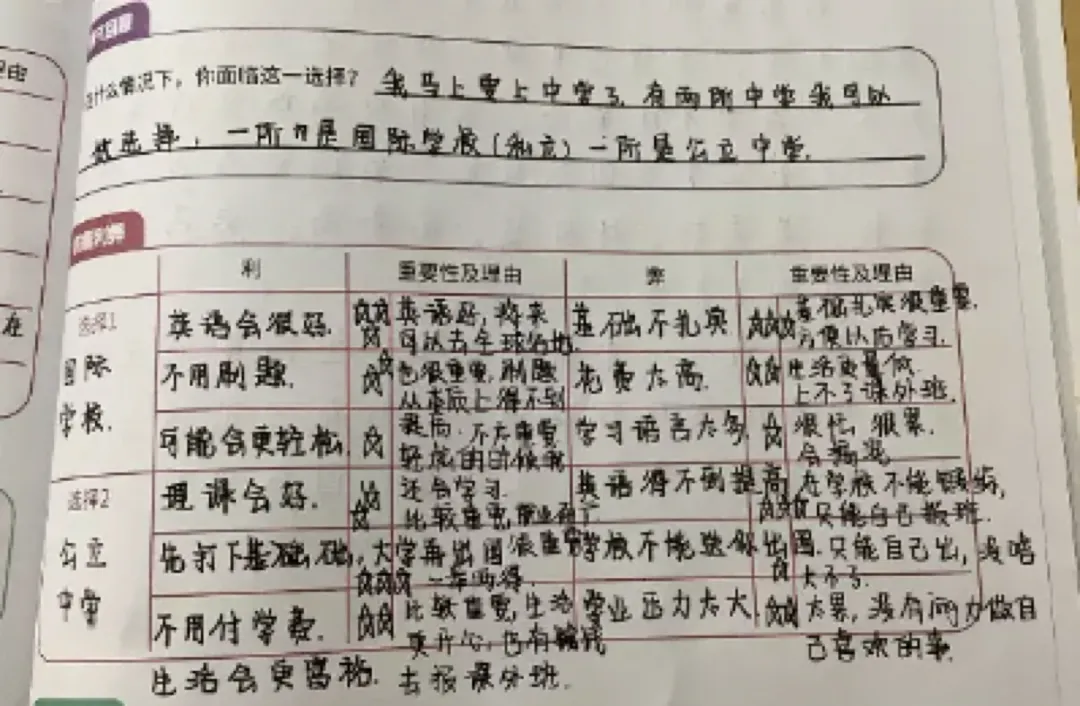 理由
在什么情况下，你面临这一选择？ 我马上要上中学了，有两所中学我可以
做选择，一所力是国际学校（私立）一所是公立中学.
利 重要性及理由 弊 重要性及理由
选择1 国际学校.
英语会很好. ☆☆☆ 英语好，将来可以去全球各地. 基础不扎实 ☆☆☆ 基础扎实很重要，方便以后学习.
不用刷题. ☆☆ 也很重要，刷题从本质上得不到提高. 花费太高. ☆☆ 生活质量低，上不了课外班.
可能会更轻松. ☆ 不太重要 轻松的时候我还会学习. 学习语言太多 ☆ 很忙，很累.
选择2 公立中学
理课会好. ☆☆ 比较重要, 英语得不到提高 ☆☆☆ 在学校不能锻炼，只能自己报班.
先打下基础，大学再出国 很重要 ☆☆☆ 一举两得. 学校不能送你出国. ☆ 只能自己出，没啥大不了.
不用付学费. ☆☆ 比较重要，生活更开心，也有钱去报课外班. 学业压力太大 ☆☆ 太累，没有动力做自己喜欢的事.
生活会更富裕.
在